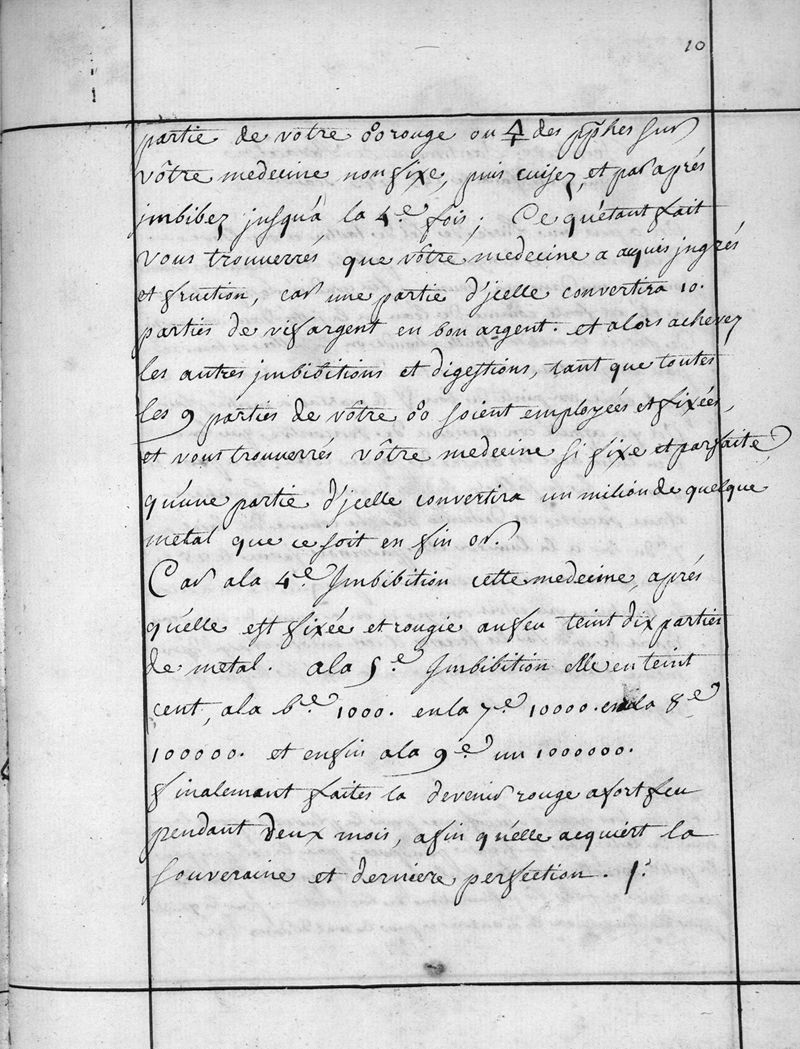 10
partie de vôtre o°o rouge ou 🜍 des pphes sur
vôtre medecine non fixe, puis cuisez, et par aprés
jmbibez jusqu'à la 4.e fois; Ce qu'étant fait
vous trouverrés que vôtre medecine a aquis jngrés
et fruction, car une partie d'jcelle convertira 10.
parties de vif argent en bon argent. et alors achevez
les autres jmbibitions et digestions, tant que toutes
les 9 parties de vôtre o°o soient employées et fixées,
et vous trouverrés vôtre medecine si fixe et parfaite
qu'une partie d'jcelle convertira un milion de quelque
metal que ce soit en fin or.
Car a la 4.e Jmbibition cette medecine, aprés
qu'elle est fixée et rougie au feu teint dix parties
de metal. a la 5.e Jmbibition elle en teint
cent, a la 6.e 1000. en la 7.e 10000. en la 8.e
100000. et enfin a la 9.e un 1000000.
finalement faites la devenir rouge a fort feu
pendant deux mois, afin qu'elle acquiért la
souveraine et derniere perfection.